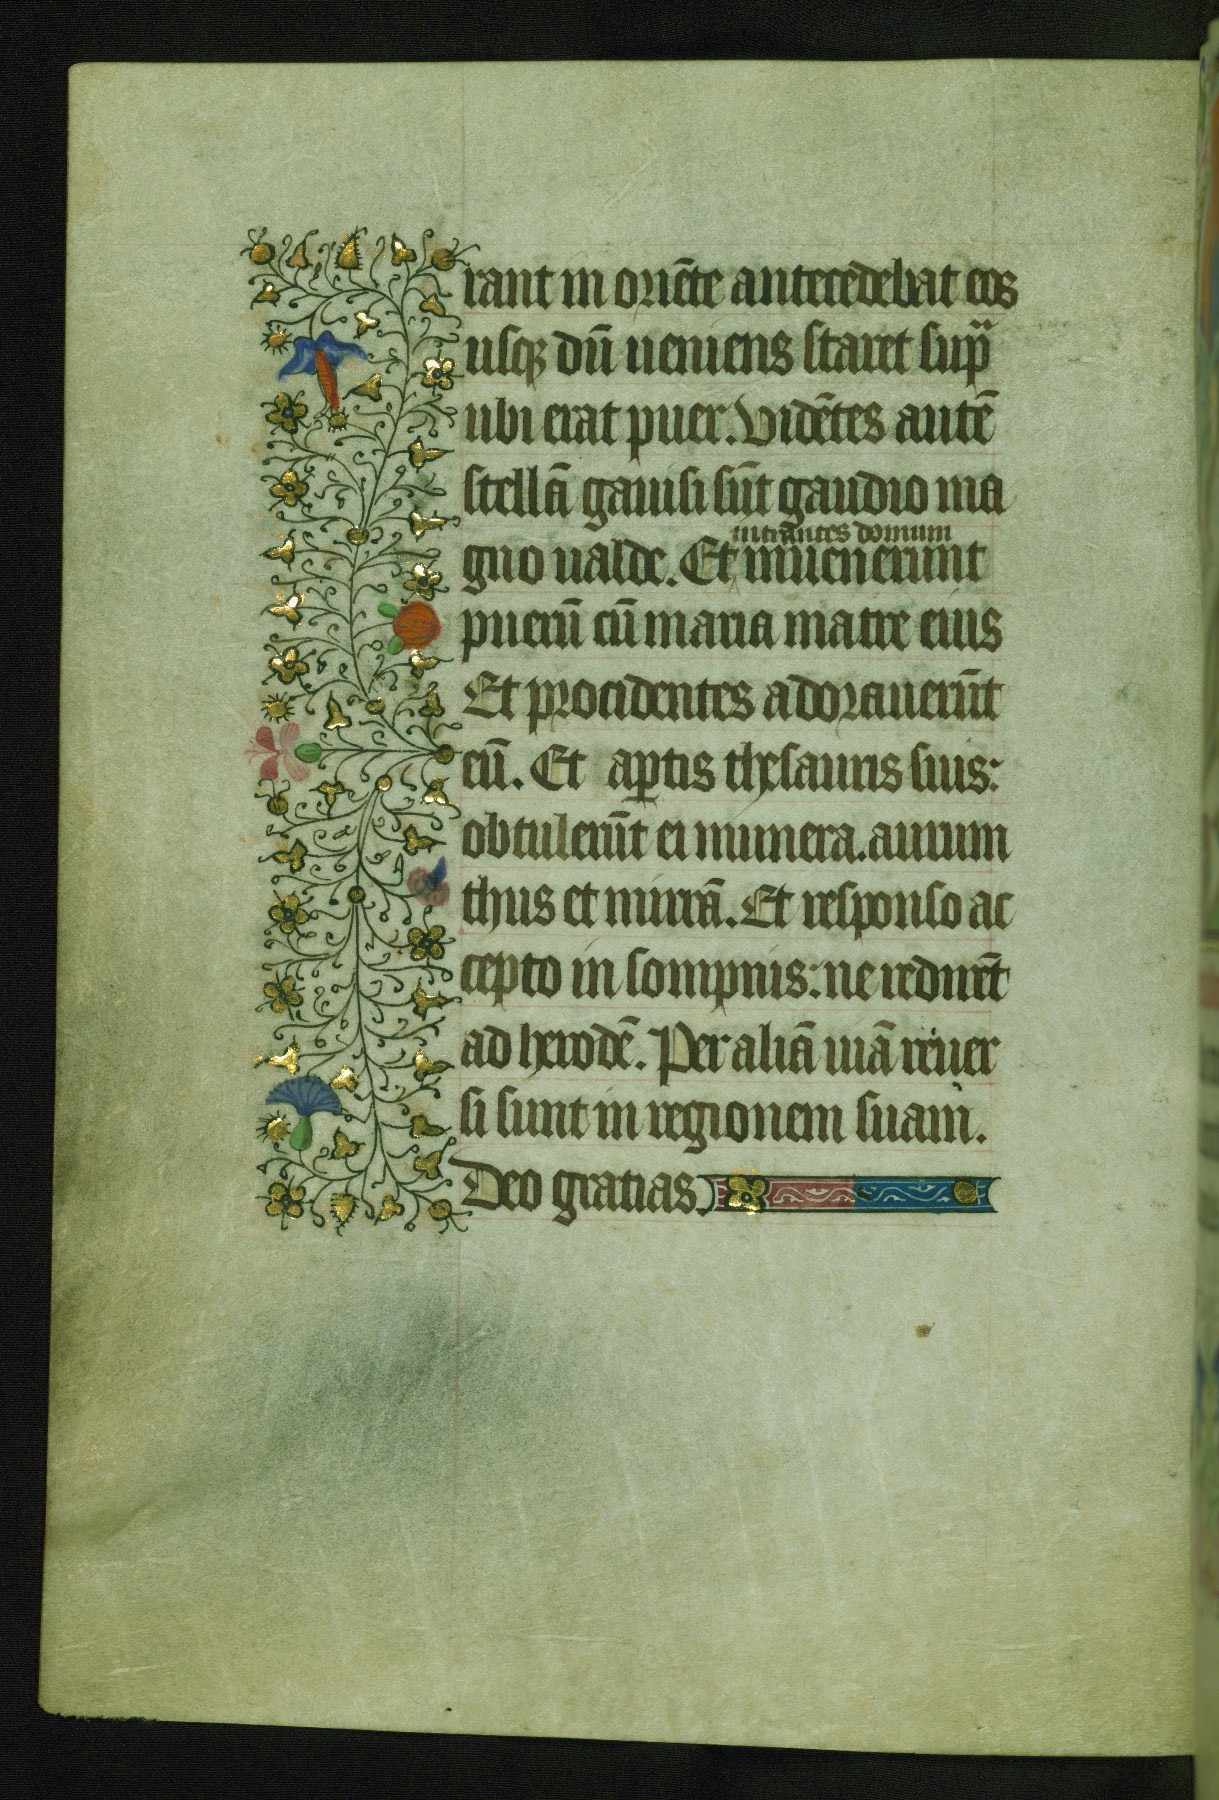 rant in oriēte antecedebat eos
usqꝫ dū ueniens staret sup̄ͣ
ubi erat puer. Vidētes autē
stellā gauisi sūt gaudio ma
gno ualde. Et
intrantes domum
inuenerunt
puerū cū maria matre eius
Et procidentes adorauerūt
eū. Et aꝑtis thesauris suis:
obtulerūt ei munera. aurum
thus et mirrā. Et responso ac
cepto in sompnis: ne redirēt
ad herodē. Per aliā uiā reuer
si sunt in regionem suam.
Deo gratias.